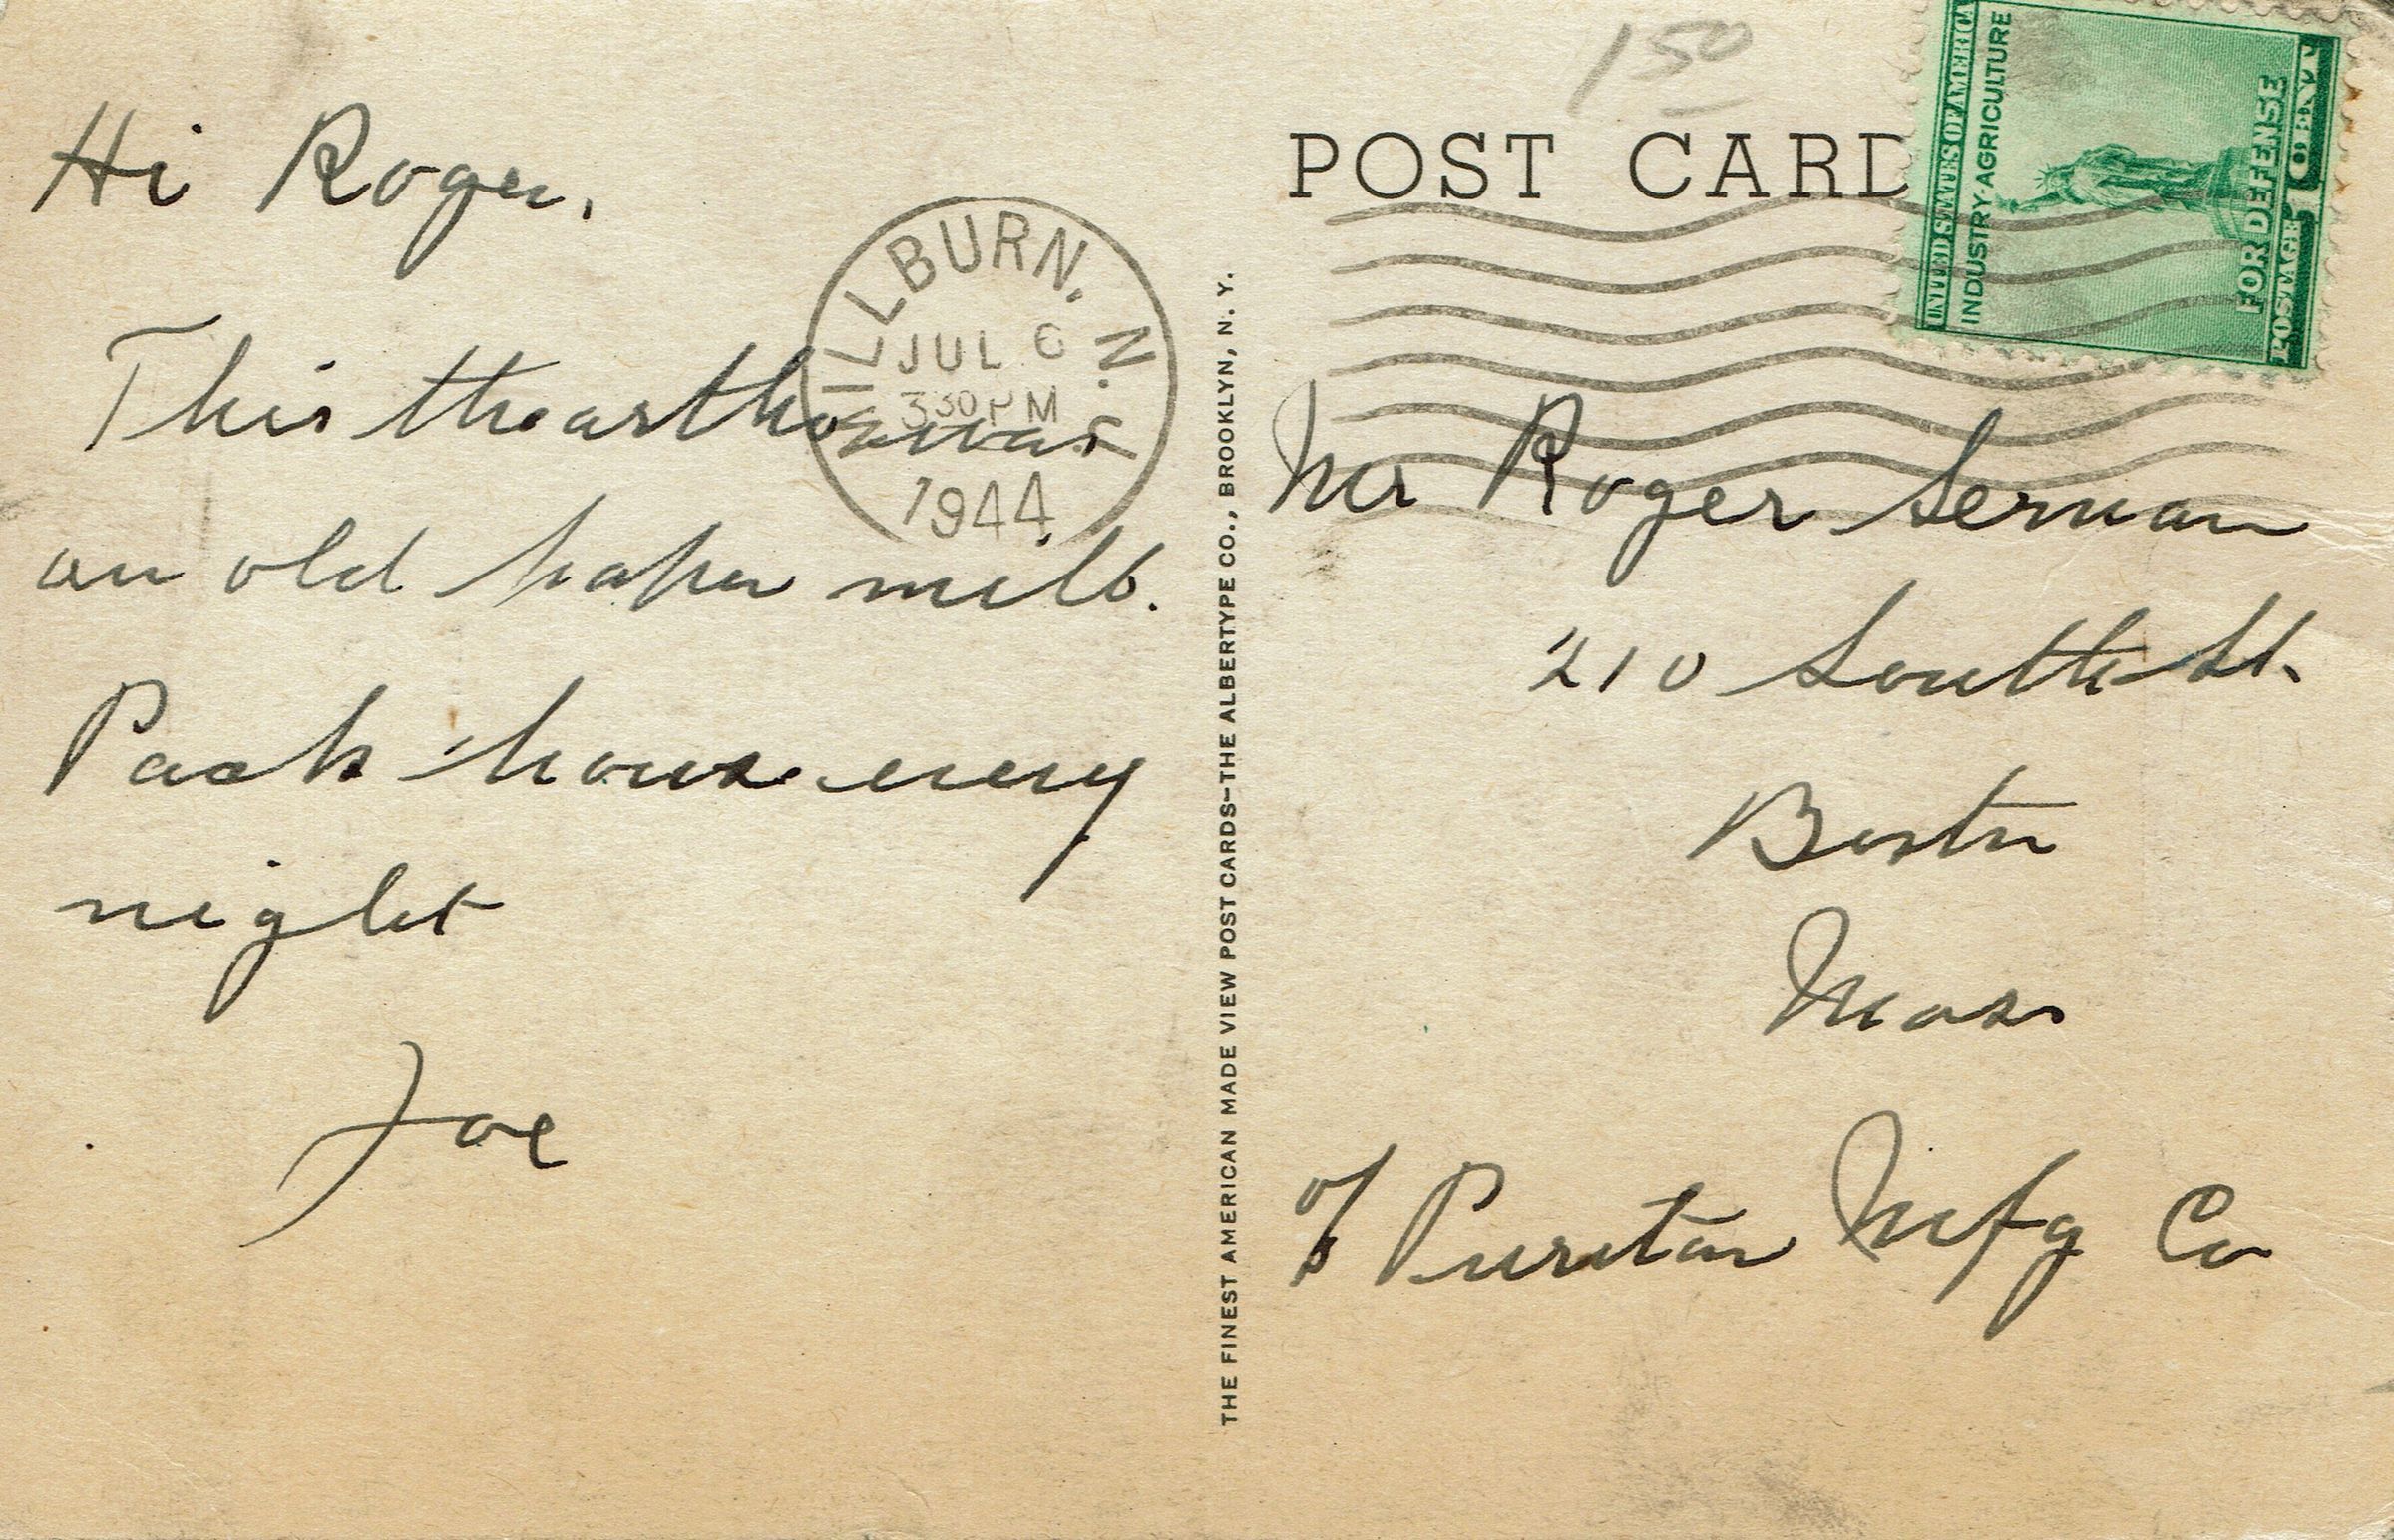 Hi Roger,
This theartho was
an old paper mill.
Pack house every
night
Joe
MILLBURN, N. J.
JUL 6
3 30 PM
1944
THE FINEST AMERICAN MADE VIEW POST CARDS—THE ALBERTYPE CO., BROOKLYN, N. Y.
150
POST CARD
UNITED STATES OF AMERICA
INDUSTRY·AGRICULTURE
FOR DEFENSE
POSTAGE 1 CENT
Mr Roger Serman
210 South St.
Boston
Mass
c/o Puritan Mfg Co